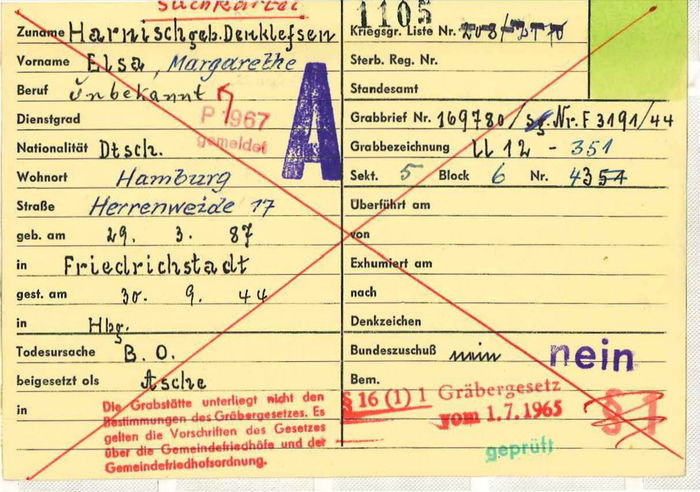 Suchkartei
Zuname Harnisch geb. Denklefsen
Vorname Elsa, Margarethe
Beruf Unbekannt
P 1967
gemeldet
A
Dienstgrad
Nationalität Dtsch.
Wohnort Hamburg
Straße Herrenweide 17
geb. am 29. 3. 87
in Friedrichstadt
gest. am 30. 9. 44
in Hbg.
Todesursache B. O.
beigesetzt als Asche
in
Die Grabstätte unterliegt nicht den
Bestimmungen des Gräbergesetzes. Es
gelten die Vorschriften des Gesetzes
über die Gemeindefriedhöfe und der
Gemeindefriedhofsordnung.
1105
Kriegsgr. Liste Nr.
Sterb. Reg. Nr.
Standesamt
Grabbrief Nr. 169780/ Sg. Nr. F 3191/44
Grabbezeichnung LL 12 - 351
Sekt. 5 Block 6 Nr. 4351
Überführt am
von
Exhumiert am
nach
Denkzeichen
Bundeszuschuß nein nein
Bem.
§ 16 (1) 1 Gräbergesetz
vom 1.7.1965
§ 1
geprüft